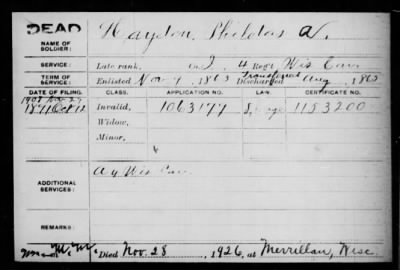 DEAD
NAME OF SOLDIER:
Haydon, Sheldon A.
SERVICE:
Late rank, Co. I, 4 Regt. Wis Cav
TERM OF SERVICE:
Enlisted Nov 7, 1863 Discharged Transferred Aug, 1865
DATE OF FILING. CLASS. APPLICATION NO. LAW. CERTIFICATE NO.
1891 Oct 12 Invalid, 1063177 1153200
Widow,
Minor,
ADDITIONAL SERVICES:
Wis Cav
REMARKS:
Died Nov. 28, 1926, at Merrillan, Wisc.